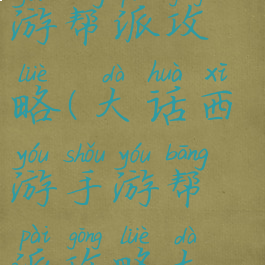 游帮派攻
lüè dà huà xī
略(大话西
yóu shǒu yóu bāng
游手游帮
pài gōng lüè dà
派攻略大